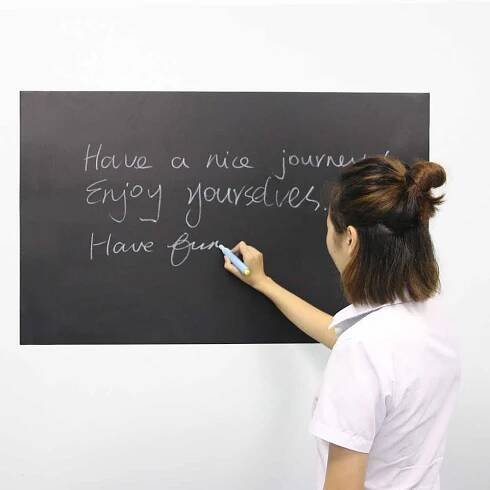 Have a nice journey!
Enjoy yourselves.
Have fun